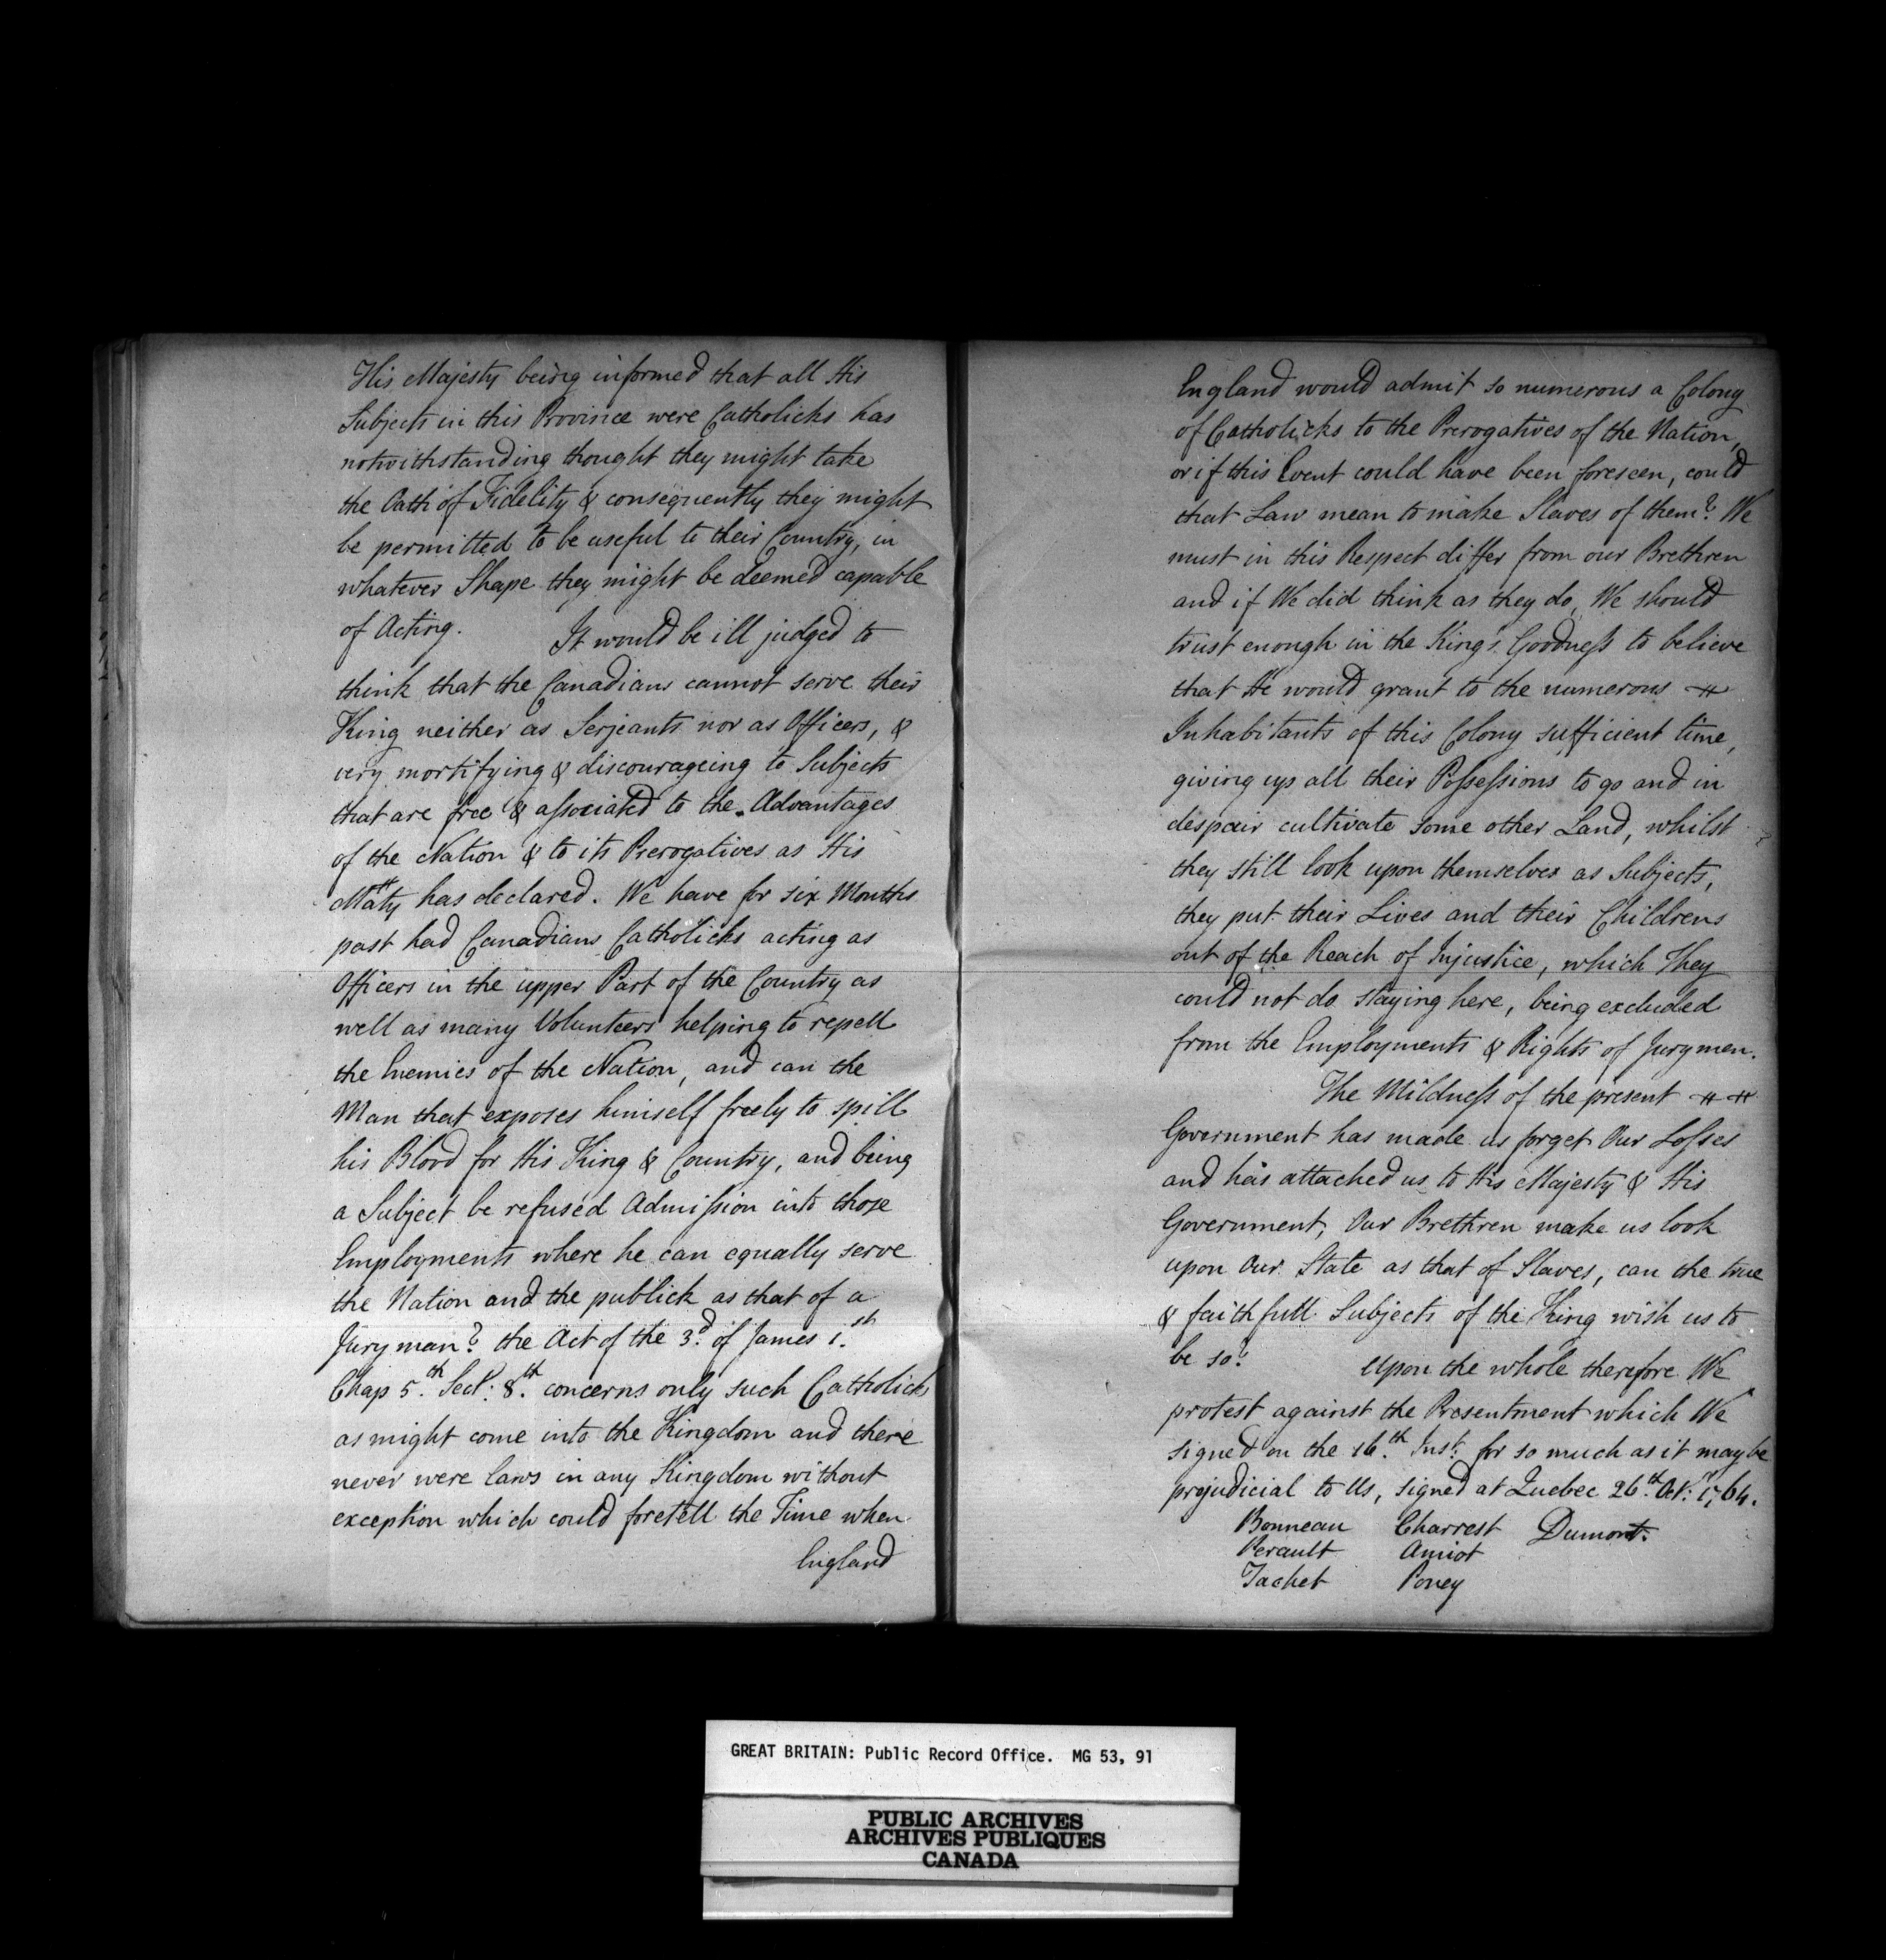 His Majesty being informed that all His
Subjects in this Province were Catholicks has
notwithstanding thought they might take
the Oath of Fidelity & consequently they might
be permitted to be useful to their Country, in
whatever Shape they might be deemed capable
of Acting. It would be ill judged to
think that the Canadians cannot serve their
King neither as Serjeants nor as Officers, &
very mortifying & discourageing to Subjects
that are free & associated to the Advantages
of the Nation & to its Prerogatives as His
Maty has declared. We have for six Months
past had Canadians Catholicks acting as
Officers in the upper Part of the Country as
well as many Volunteers helping to repell
the Enemies of the Nation, and can the
Man that exposes himself freely to spill
his Blood for His King & Country, and being
a Subject be refused Admission into those
Employments where he can equally serve
the Nation and the publick as that of a
Juryman? the Act of the 3d. of James 1.st
Chap 5.th Sect: 8.th concerns only such Catholicks
as might come into the Kingdom and there
never were laws in any Kingdom without
exception which could foretell the Time when
England
England would admit so numerous a Colony
of Catholicks to the Prerogatives of the Nation,
or if this Event could have been foreseen, could
that Law mean to make Slaves of them? We
must in this Respect differ from our Brethren
and if We did think as they do, We should
trust enough in the King's Goodness to believe
that He would grant to the numerous
Inhabitants of this Colony sufficient time,
giving up all their Possessions to go and in
despair cultivate some other Land, whilst
they still look upon themselves as Subjects,
they put their Lives and their Childrens
out of the Reach of Injustice, which They
could not do staying here, being excluded
from the Employments & Rights of Jurymen.
The Mildness of the present
Government has made us forget Our Losses
and has attached us to His Majesty & His
Government, Our Brethren make us look
upon Our State as that of Slaves, can the true
& faithfull Subjects of the King wish us to
be so? Upon the whole therefore We
protest against the Presentment which We
signed on the 16.th Inst: for so much as it may be
prejudicial to Us, signed at Quebec 26.th Oct: 1764.
Bonneau Charrest Dumont.
Perault Amiot
Tachet Poney
GREAT BRITAIN: Public Record Office. MG 53, 91
PUBLIC ARCHIVES
ARCHIVES PUBLIQUES
CANADA